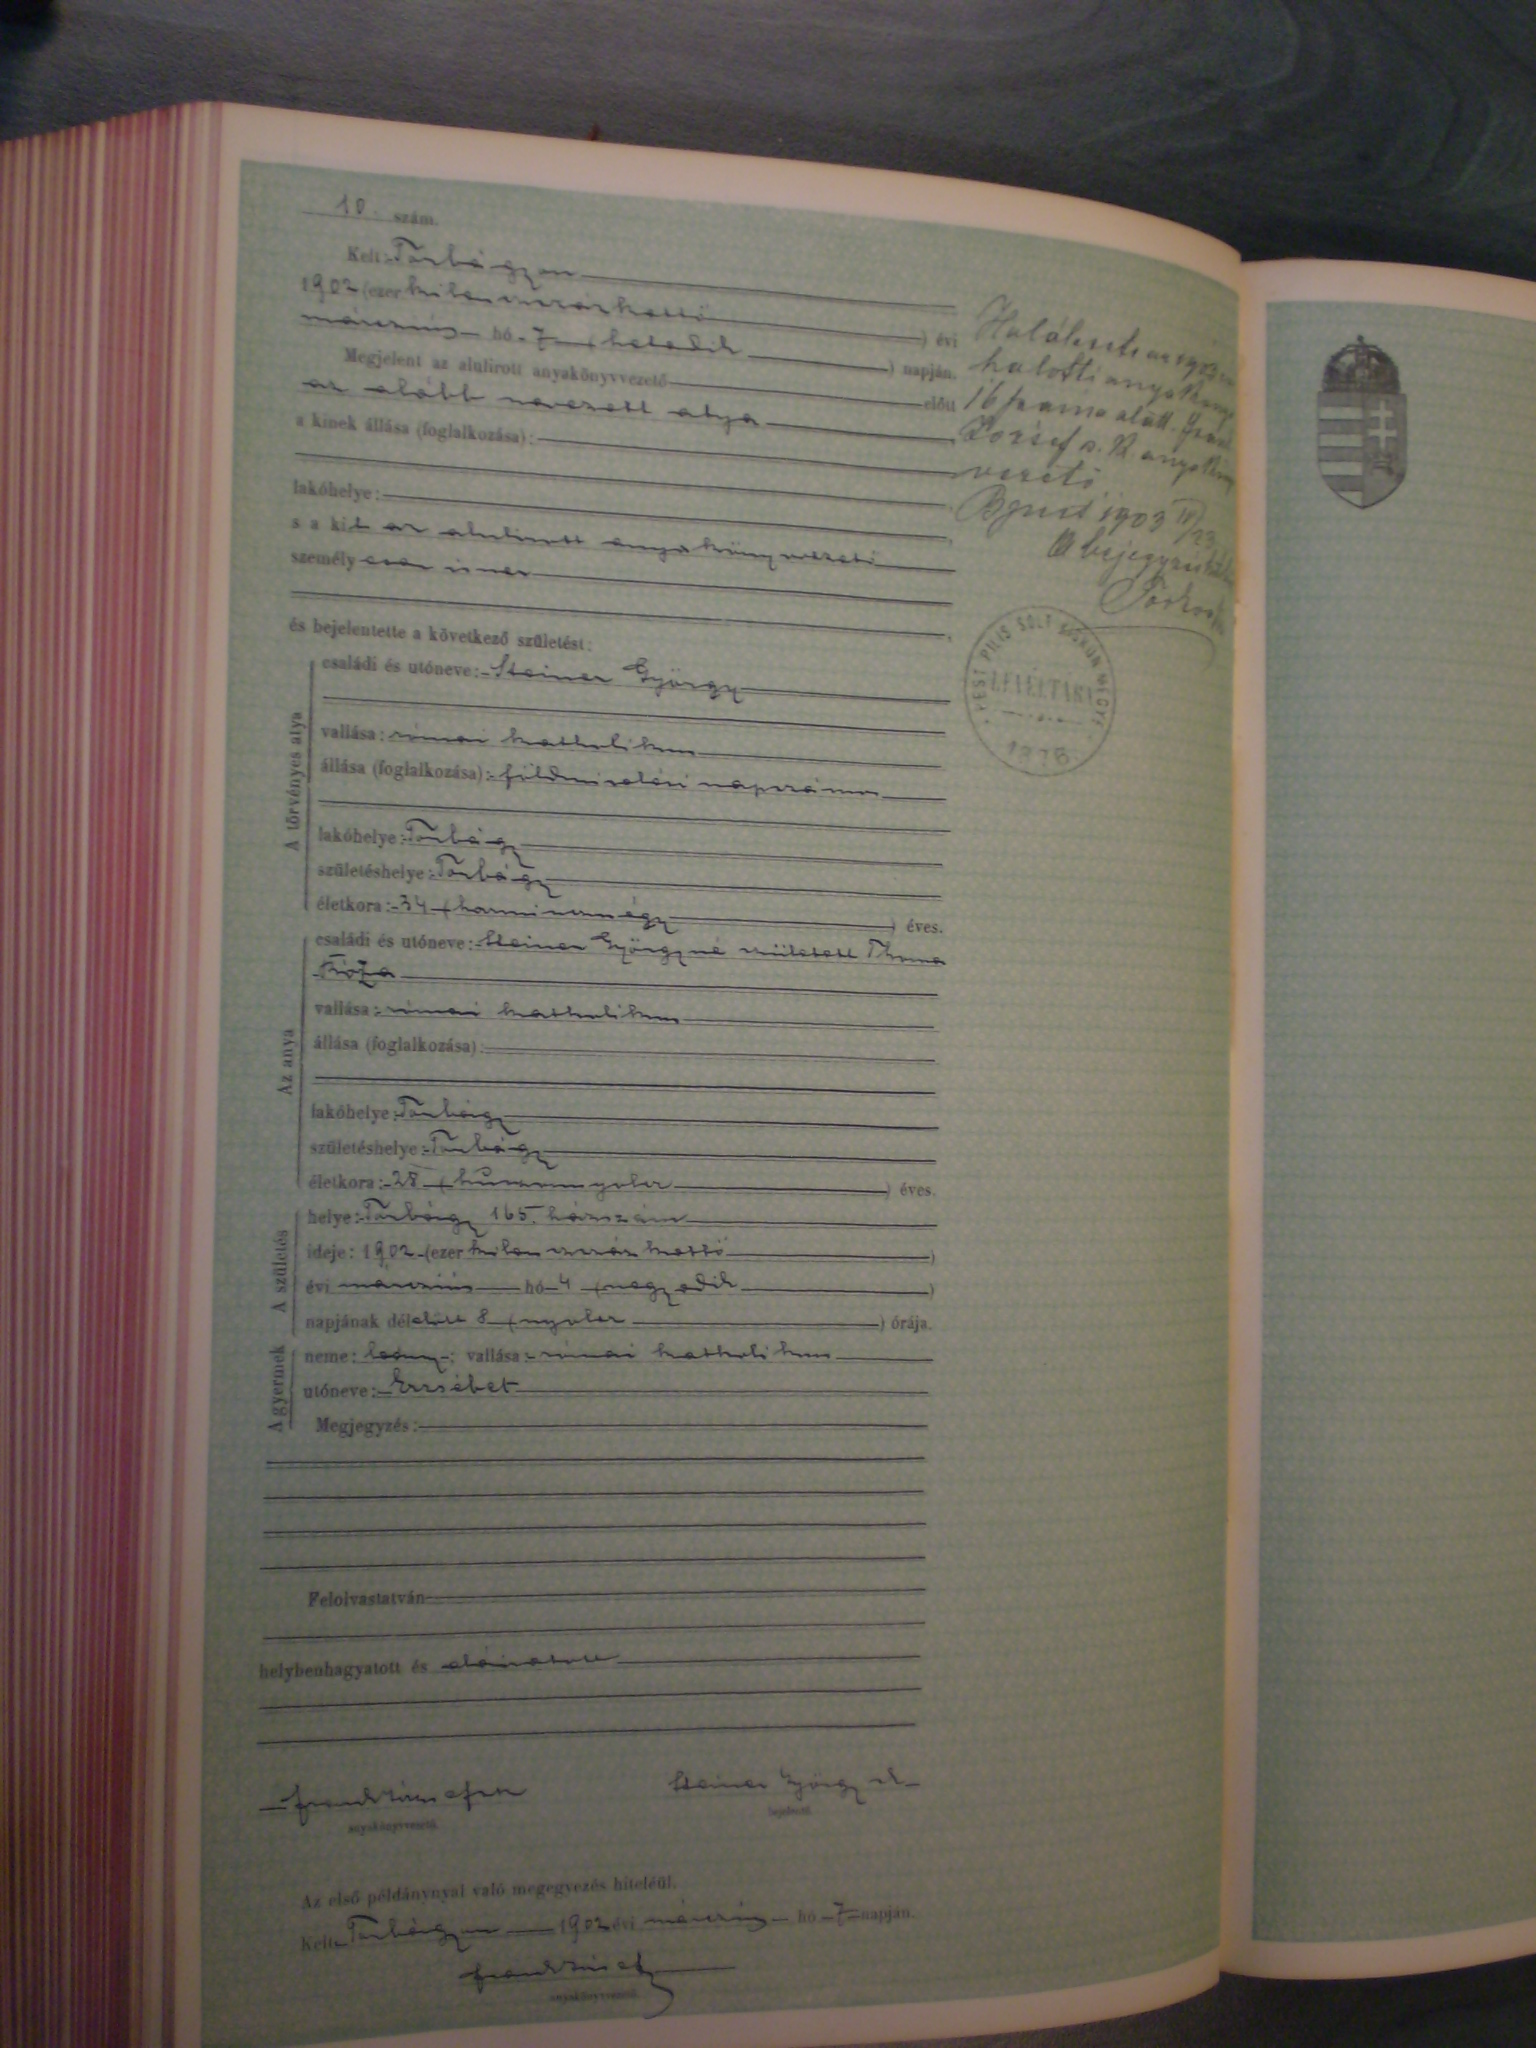 10 szám.
Kelt: Torbágyon
1902 (ezer kilenczszázkettő ) évi
márczius hó 7 (hetedik ) napján.
Megjelent az alulirott anyakönyvvezető előtt
az alább nevezett atya
a kinek állása (foglalkozása):
lakóhelye:
s a kit az alulirott anyakönyvvezető
személyesen ismer
és bejelentette a következő születést:
A törvényes atya
családi és utóneve: Steiner György
vallása: római katholikus
állása (foglalkozása): földmivelési napszámos
lakóhelye: Torbágy
születéshelye: Torbágy
életkora: 34 (harmincznégy ) éves.
Az anya
családi és utóneve: Steiner Györgyné született Thoma
Róza
vallása: római katholikus
állása (foglalkozása):
lakóhelye: Torbágy
születéshelye: Torbágy
életkora: 28 (huszonnyolcz ) éves.
A születés
helye: Torbágy 165. házszám
ideje: 1902 (ezer kilenczszáz kettő )
évi márczius hó 4 (negyedik )
napjának délelőtt 8 (nyolcz ) órája.
A gyermek
neme: leány; vallása: római katholikus
utóneve: Erzsébet
Megjegyzés:
Felolvastatván
helybenhagyatott és aláiratott
anyakönyvvezető.
Steiner György
bejelentő.
Az első példánynyal való megegyezés hiteléül.
Kelt Torbágyon 1902 évi márczius hó 7 napján.
anyakönyvvezető.
Halálesete az 1903
halotti anyakönyv
16 száma alatt.
József s. k. anyakönyv
vezető
Bpest 1903 II/23
A bejegyzés
PEST PILIS SOLT KISKUN MEGYE
LEVÉLTÁRA
1876